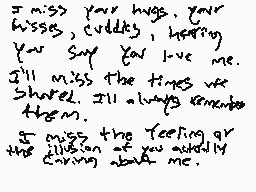 I miss your hugs, your
kisses, cuddles, hearing
you say you love me.
I'll miss the times we
shared. I'll always remember
them.
I miss the feeling or
the illusion of you actually
caring about me.